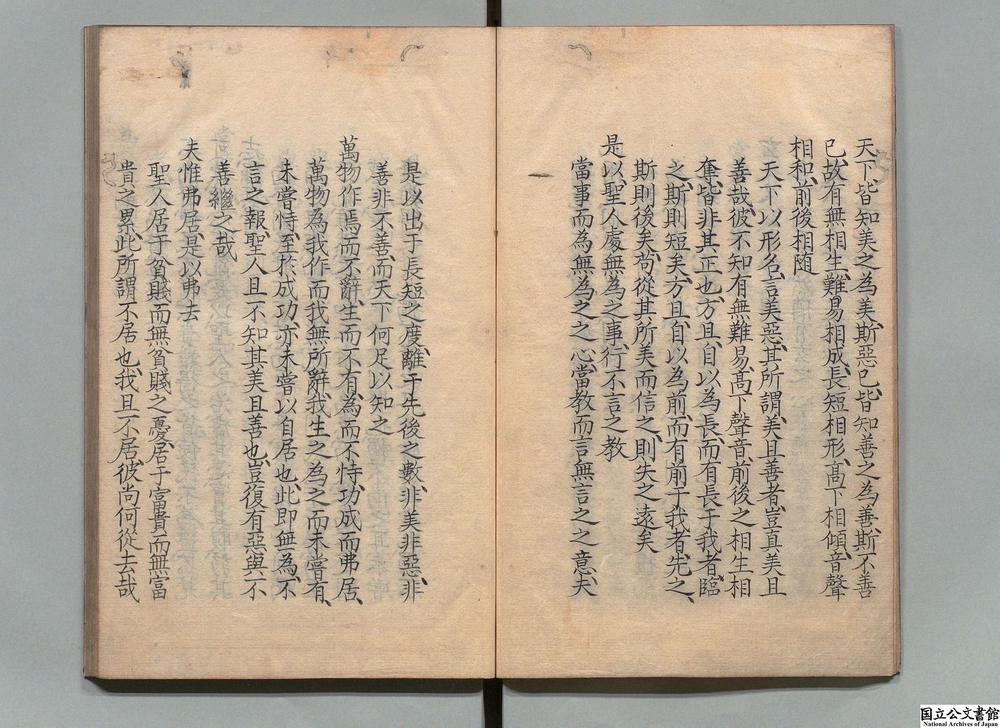 天下皆知美之為美、斯惡已、皆知善之為善、斯不善
已、故有無相生、難易相成、長短相形、髙下相傾、音聲
相和、前後相随
天下以形名、言美惡、其所謂、美且善者、豈真美且
善哉、彼不知有無難易髙下聲音、前後之相生相
奪、皆非其正也、方且自以為長、而有長于我者、臨
之、斯則短矣、方且自以為前、而有前于我者、先之、
斯則後矣、苟從其所美而信之、則失之遠矣
是以聖人處無為之事、行不言之教
當事而為、無為之之心、當教而言、無言之之意、夫
是以出于長短之度、離于先後之數、非美非惡、非
善非不善、而天下何足以知之
萬物作焉而不辭、生而不有、為而不恃、功成而弗居、
萬物為我作而我無所辭、我生之為之而未甞有、
未甞恃、至於成功、亦未嘗以自居也、此即無為、不
言之報、聖人且不知其美且善也、豈復有惡與不
善繼之哉
夫惟弗居、是以弗去
聖人居于貧賤而無貧賤之憂、居于富貴而無富
貴之累、此所謂不居也、我且不居、彼尚何從去哉
国立公文書館
National Archives of Japan